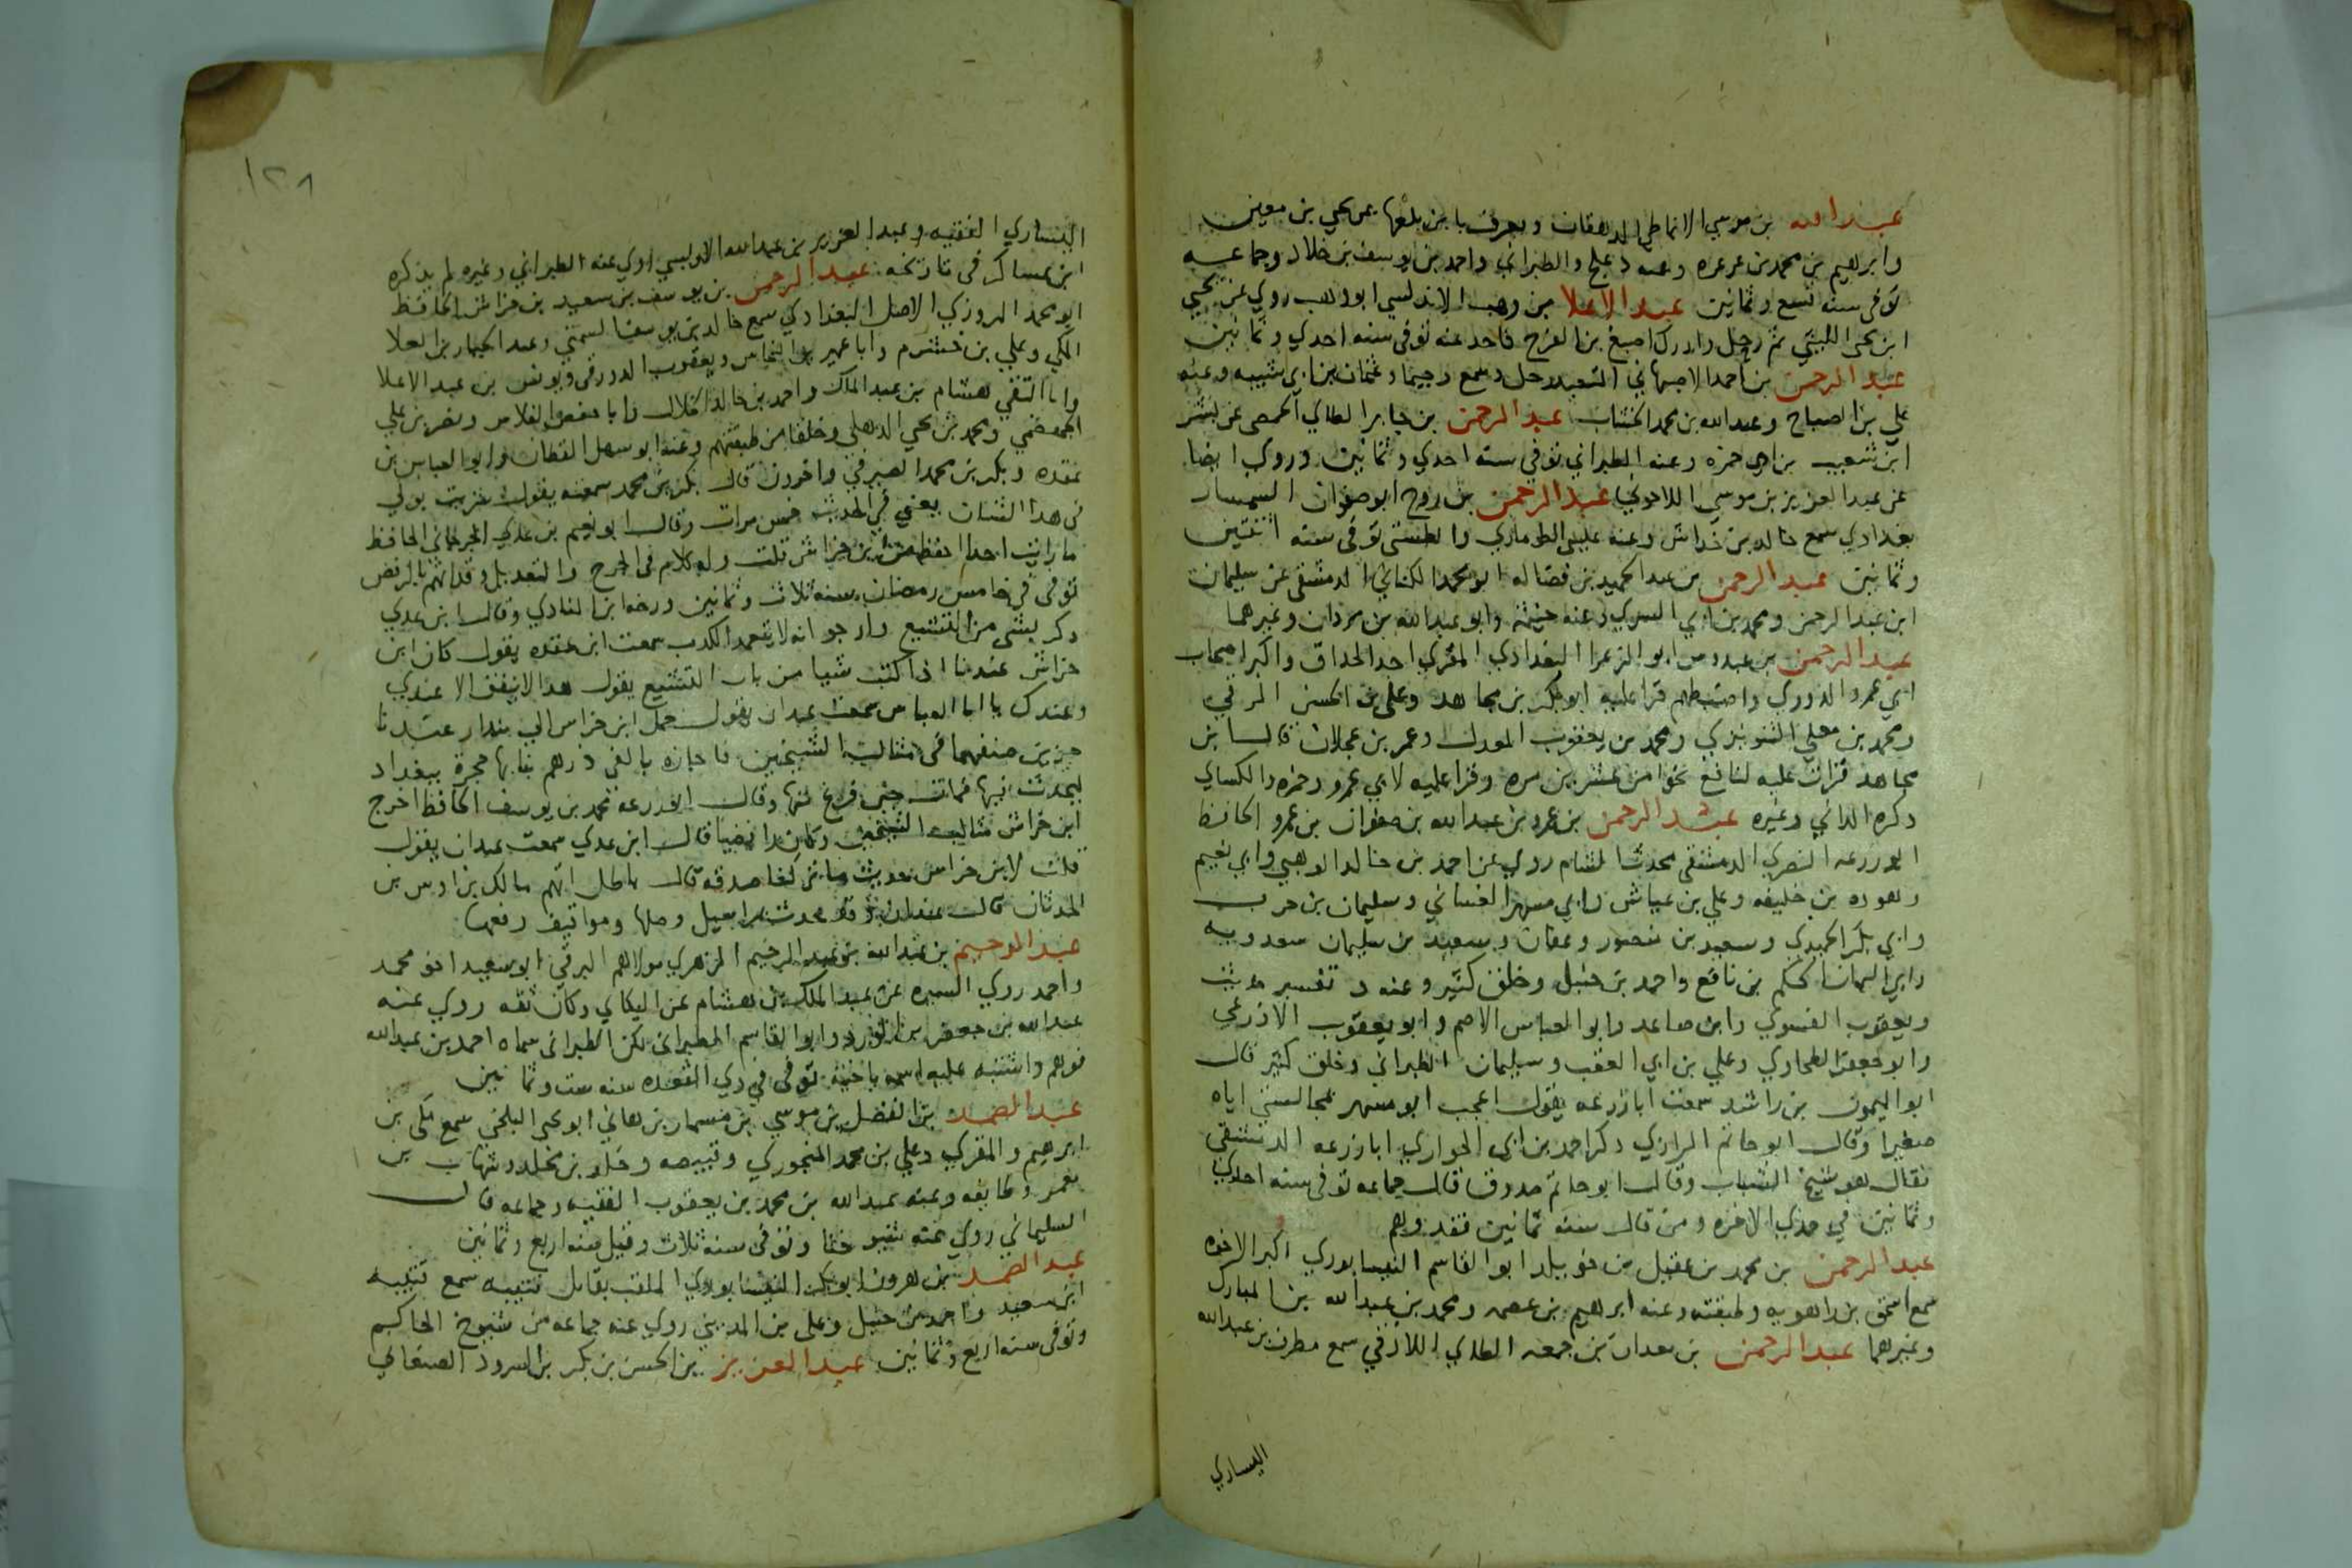 عبد الله بن موسي الانماطي الدهقان ويعرف بابن بلعها عن يحيي بن معين
وابرهيم بن محمد بن عرعره وعنه دعلج والطبراني واحمد بن يوسف بن خلاد وجماعه
توفي سنه تسع وثمانين عبد الاعلا بن وهب الاندلسي ابو وهب روي عن يحيي
ابن يحيي الليثي ثم رحل وادرك اصبغ بن الفرج فاخذ عنه توفي سنه احدي وثمانين
عبد الرحمن بن احمد الاصبهاني المتعبد رحل وسمع دحيما وعثمان بن ابي شيبه وعنه
علي بن الصباح وعبد الله بن محمد الخشاب عبد الرحمن بن جابر الطاي الحمصي عن بشر
ابن شعيب بن ابي حمزه وعنه الطبراني توفي سنه احدي وثمانين وروي ايضا
عن عبد العزيز بن موسي اللاحوني عبد الرحمن بن روح ابو صفوان السمسار
بغدادي سمع خالد بن خداش وعنه عيسي الطوماري والطستي توفي سنه اثنتين
وثمانين عبد الرحمن بن عبد الحميد بن فضاله ابو محمد الكناني الدمشقي عن سليمان
ابن عبد الرحمن ومحمد بن ابي السري وعنه خيثمه وابو عبد الله بن مروان وغيرهما
عبد الرحمن بن عبدوس ابو الزعرا البغدادي المقري احد الحذاق واكبر اصحاب
ابي عمرو الدوري واضبطهم قرا عليه ابو بكر بن مجاهد وعلي بن الحسن الرقي
ومحمد بن معلي الشونيزي ومحمد بن يعقوب المعدل وعمر بن عجلان قال ابن
مجاهد قرات عليه لنافع نحوا من عشرين مره وقرا عليه لابي عمرو وحمزه والكساي
ذكره الداني وغيره عبد الرحمن بن عمرو بن عبد الله بن صفوان بن عمرو الحافظ
ابو زرعه النصري الدمشقي محدث الشام روي عن احمد بن خالد الوهبي وابي نعيم
وهوده بن خليفه وعلي بن عياش وابي مسهر الغساني وسليمان بن حرب
وابي بكر الحميدي وسعيد بن منصور وعفان وسعيد بن سليمان سعدويه
وابي اليمان الحكم بن نافع واحمد بن حنبل وخلق كثير وعنه د تفسير حديث
ويعقوب الفسوي وابن صاعد وابو العباس الاصم وابو يعقوب الاذرعي
وابو جعفر الطحاوي وعلي بن ابي العقب وسليمان الطبراني وخلق كثير قال
ابو الميمون بن راشد سمعت ابا زرعه يقول اعجب ابو مسهر بمجالستي اياه
صغيرا وقال ابو حاتم الرازي ذكر احمد بن ابي الحواري ابا زرعه الدمشقي
فقال هو شيخ الشباب وقال ابو حاتم صدوق قال جماعه توفي سنه احدي
وثمانين في جمدي الاخره ومن قال سنه ثمانين فقد وهم
عبد الرحمن بن محمد بن عقيل بن خويلد ابو القاسم النيسابوري اكبر الاخوه
سمع اسحق بن راهويه وطبقته وعنه ابرهيم بن عصمه ومحمد بن عبد الله بن المبارك
وغيرهما عبد الرحمن بن معدان بن جمعه الطاي اللاذقي سمع مطرف بن عبد الله
اليساري
١٢٨
اليساري الفقيه وعبد العزيز بن عبد الله الاويسي روي عنه الطبراني وغيره لم يذكره
ابن عساكر في تاريخه عبد الرحمن بن يوسف بن سعيد بن خراش الحافظ
ابو محمد المروزي الاصل البغدادي سمع خالد بن يوسف السمتي وعبد الجبار بن العلا
المكي وعلي بن خشرم وابا عمير بن النحاس ويعقوب الدورقي ويونس بن عبد الاعلا
وابا التقي هشام بن عبد الملك واحمد بن خالد الخلال وابا حفص الفلاس ونصر بن علي
الجهضمي ومحمد بن يحيي الذهلي وخلقا من طبقتهم وعنه ابو سهل القطان وابو العباس بن
عقده وبكر بن محمد الصيرفي واخرون قال بكر بن محمد سمعته يقول شربت بولي
في هذا الشان يعني في الحديث خمس مرات وقال ابو نعيم بن عدي الجرجاني الحافظ
ما رايت احدا احفظ من ابن خراش قلت وله كلام في الجرح والتعديل وقد اتهم بالرفض
توفي في خامس رمضان سنه ثلاث وثمانين ورخه ابن المنادي وقال ابن عدي
ذكر بشي من التشيع وارجو انه لا يتعمد الكذب سمعت ابن عقده يقول كان ابن
خراش عندنا اذا كتب شيا من باب التشيع يقول هذا لا ينفق الا عندي
وعندك يا ابا العباس سمعت عبدان يقول حمل ابن خراش الي بندار عندنا
جزين صنفهما في مثالب الشيخين فاجازه بالفي درهم بني بها حجرة ببغداد
ليحدث فيها فمات حين فرغ منها وقال ابو زرعه محمد بن يوسف الحافظ اخرج
ابن خراش مثالب الشيخين وكان رافضيا قال ابن عدي سمعت عبدان يقول
قلت لابن خراش حديث ما تركنا صدقه قال باطل اتهم مالك بن اوس بن
الحدثان قال عبدان وقد حدث بمراسيل وصلها ومواقيف رفعها
عبد الرحيم بن عبد الله بن عبد الرحيم الزهري مولاهم البرقي ابو سعيد اخو محمد
واحمد روي السيره عن عبد الملك بن هشام عن البكاي وكان ثقه روي عنه
عبد الله بن جعفر بن الورد وابو القاسم الطبراني لكن الطبراني سماه احمد بن عبد الله
فوهم واشتبه عليه اسمه باخيه توفي في ذي القعده سنه ست وثمانين
عبد الصمد بن الفضل بن موسي بن مسمار بن هاني ابو يحيي البلخي سمع مكي بن
ابرهيم والمقري وعلي بن محمد المنجوري وقبيصه وخلد بن مخلد وشهاب بن
معمر وطايفه وعنه عبد الله بن محمد بن يعقوب الفقيه وجماعه قال
السليماني روي عنه توفي سنه ثلاث وقيل سنه اربع وثمانين
عبد الصمد بن هرون ابو بكر النيسابوري الملقب بقاتل قتيبه سمع قتيبه
ابن سعيد واحمد بن حنبل وعلي بن المديني روي عنه جماعه من شيوخ الحاكم
وتوفي سنه اربع وثمانين عبد العزيز بن الحسن بن بكر بن الشرود الصنعاني